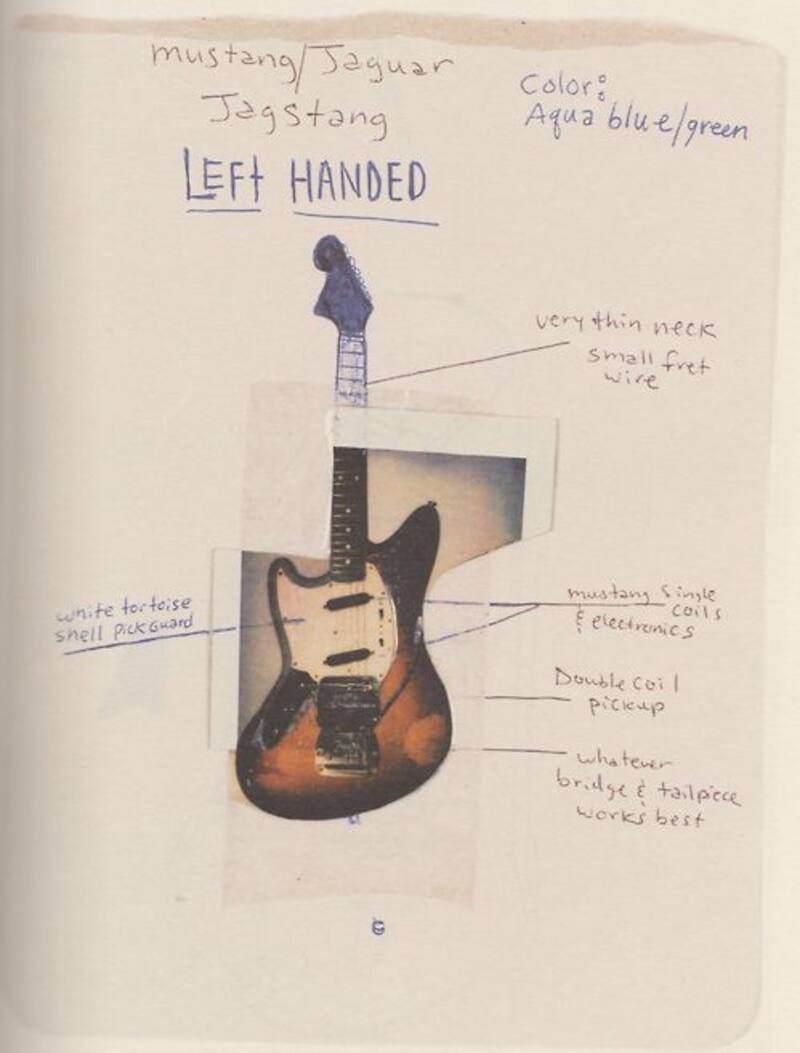 mustang/Jaguar
Jagstang
LEFt HANDED
Color:
Aqua blue/green
very thin neck
small fret
wire
white tortoise
shell pickguard
mustang single
coils
& electronics
Double coil
pickup
whatever
bridge & tailpiece
works best